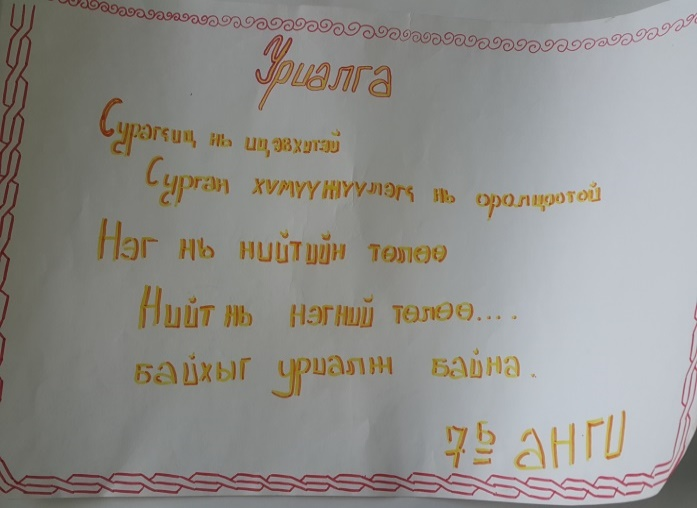 Уриалга
Сурагчид нь идэвхитэй
Сурган хүмүүжүүлэгч нь оролцоотой
Нэг нь нийтийн төлөө
Нийт нь нэгний төлөө....
байхыг уриалж байна.
7б анги